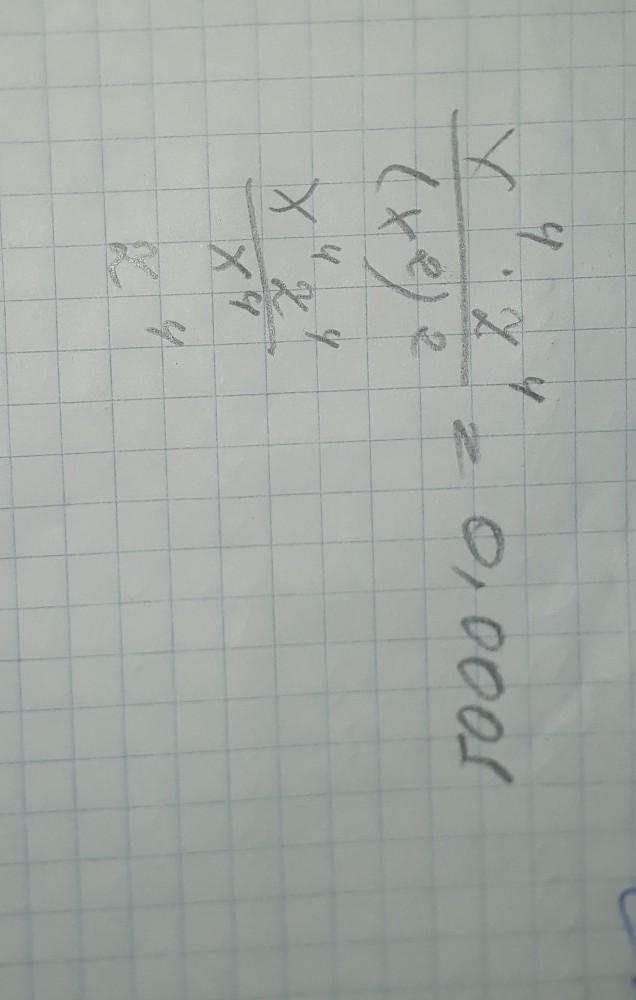 x⁴ · z⁴
(x²)² = 0,0001
x⁴z⁴
x⁴
z⁴